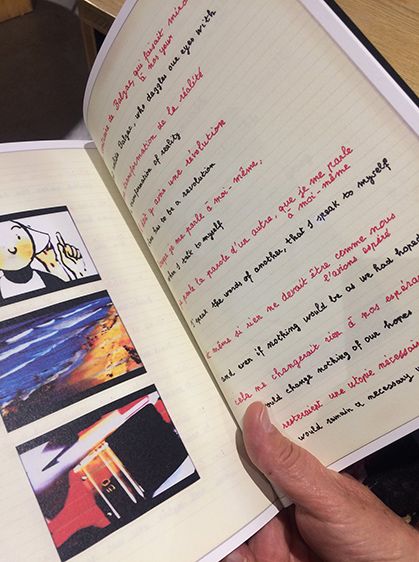 de Balzac, qui faisait
à nos yeux
Balzac, who dazzles our eyes with
transformation de la réalité
transformation of reality
y avoir une révolution
has to be a revolution
je me parle à moi-même,
when I talk to myself
parle la parole d'un autre, que je me parle
à moi-même
I speak the words of another, that I speak to myself
même si rien ne devait être comme nous
l'avions espéré
and even if nothing would be as we had hoped
cela ne changerait rien à nos
would change nothing of our hopes
resteraient une utopie
would remain a necessary